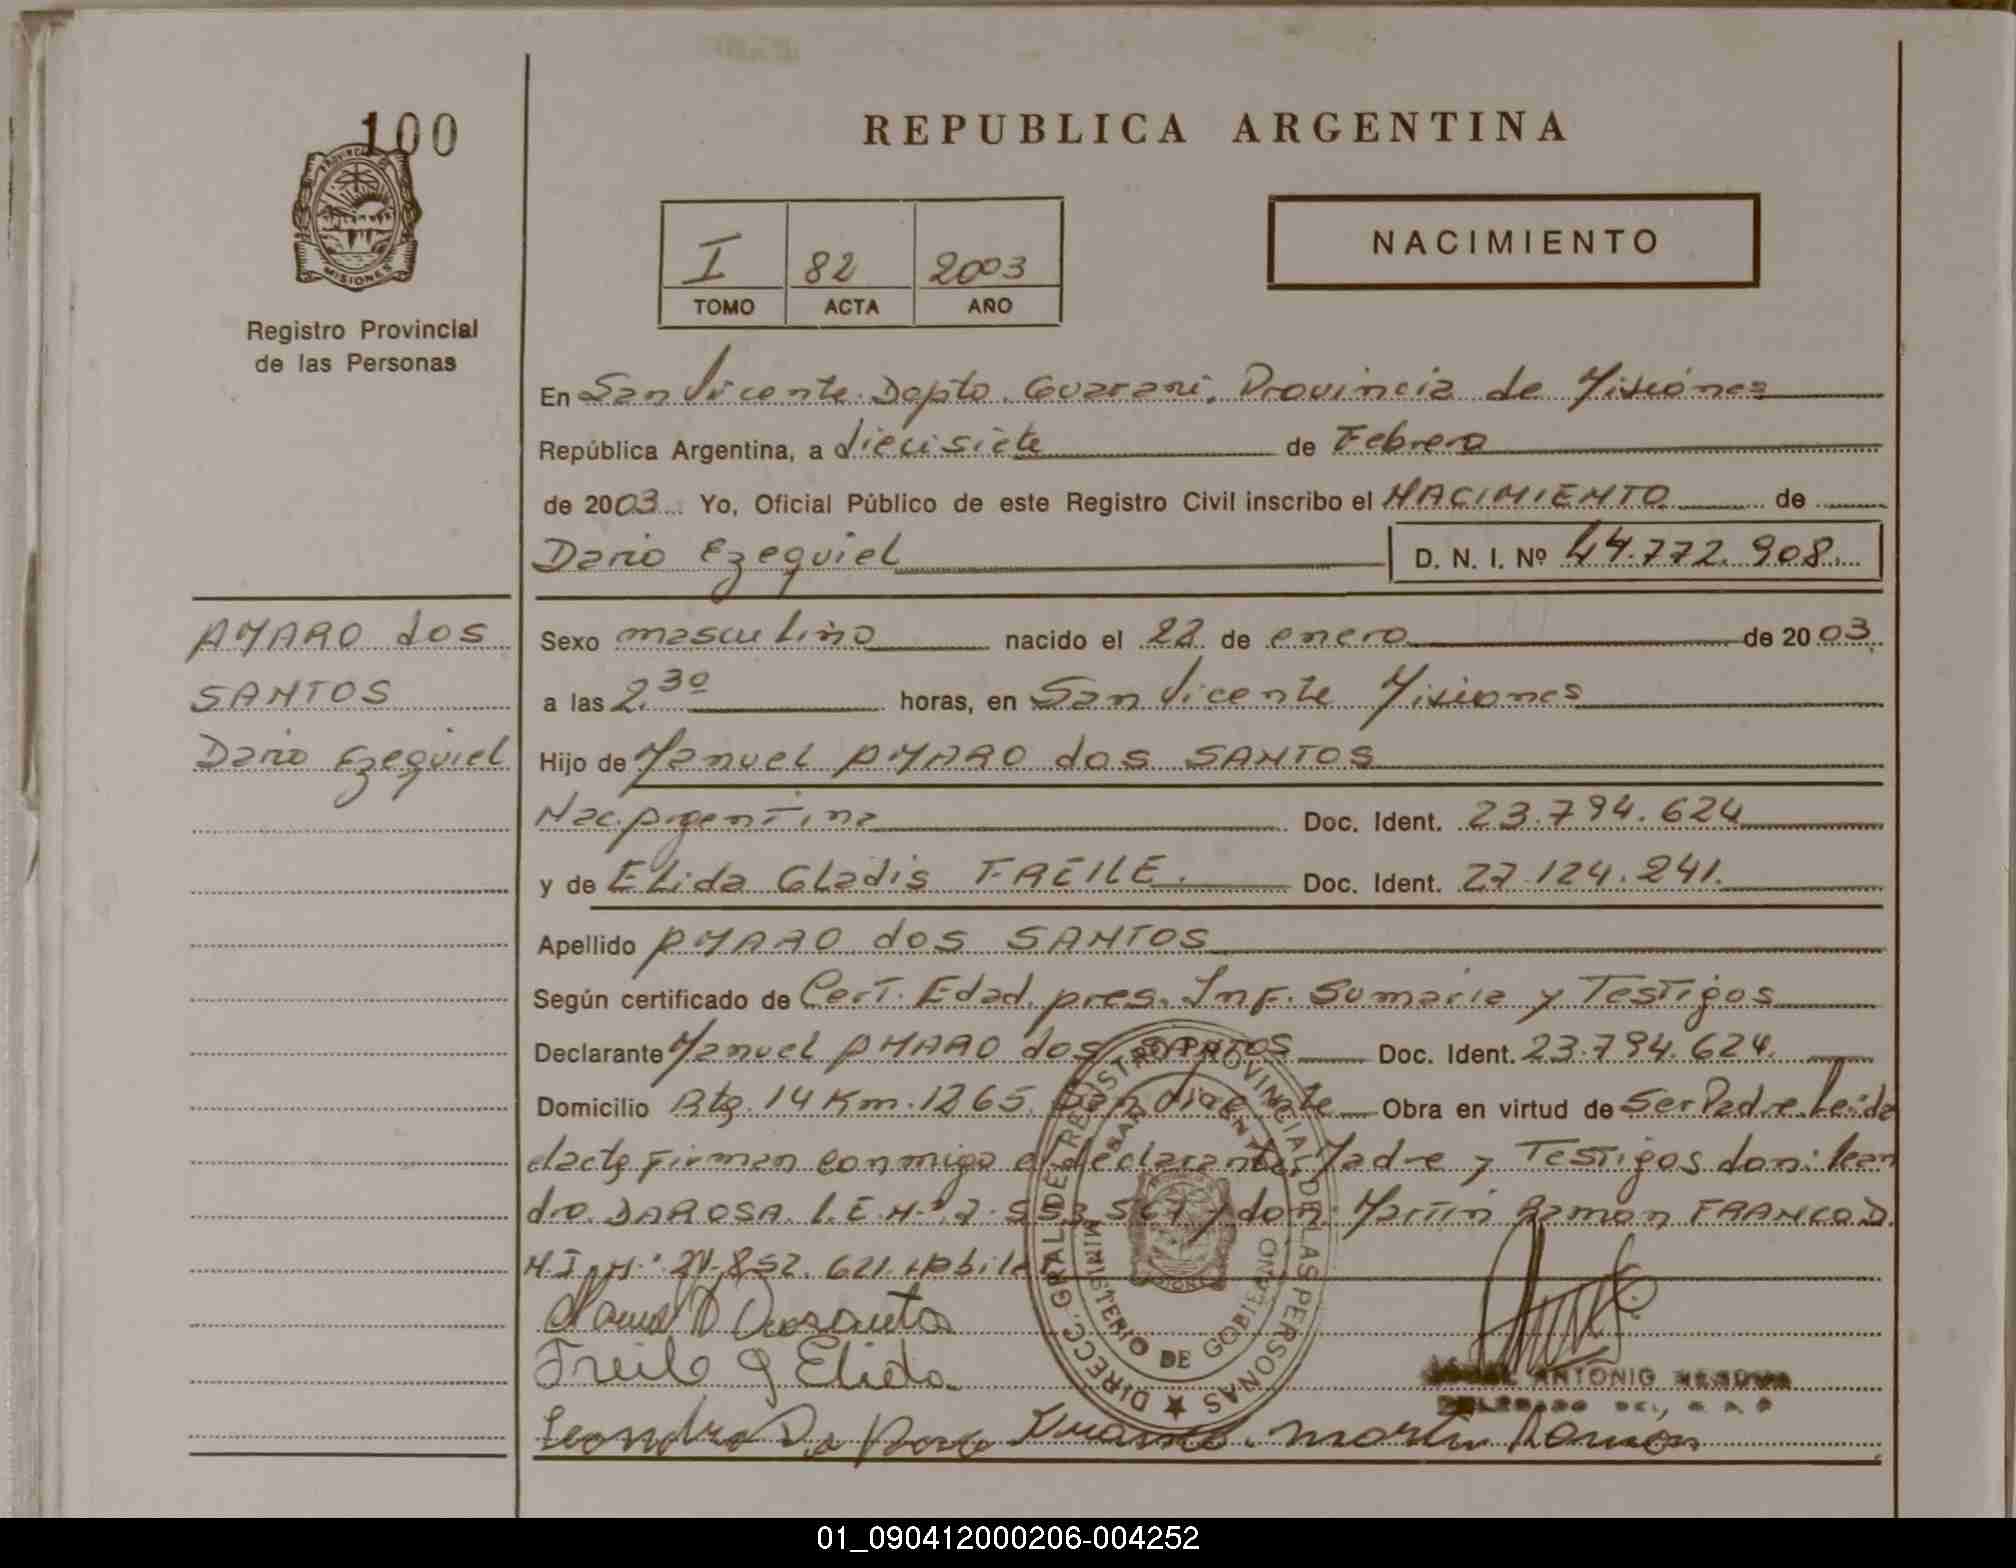 100
REPUBLICA ARGENTINA
PROVINCIA DE
MISIONES
Registro Provincial
de las Personas
I 82 2003
TOMO ACTA AÑO
NACIMIENTO
En San Vicente Depto. Guarani. Provincia de Misiones
República Argentina, a diecisiete de Febrero
de 2003 Yo, Oficial Público de este Registro Civil inscribo el NACIMIENTO de
Dario Ezequiel D. N. I. Nº 44.772.908.
AMARO dos
SANTOS
Dario Ezequiel
Sexo masculino nacido el 22 de enero de 2003
a las 2.30 horas, en San Vicente Misiones
Hijo de Manuel AMARO dos SANTOS
Nac. Argentina Doc. Ident. 23.794.624
y de Elida Gladis FREILE. Doc. Ident. 27.124.241.
Apellido AMARO dos SANTOS
Según certificado de Cert. Edad. pres. Inf. Sumaria y Testigos
Declarante Manuel AMARO dos SANTOS Doc. Ident. 23.794.624.
Domicilio Rta. 14 Km. 1265. San Vicente Obra en virtud de Ser Padre. Leida
el acta Firman conmigo el declarante, Madre y Testigos don: Lean
dro. DAROSA. L.E.Nº. 7.553.567 y don: Martin Ramon FRANCO D.
N.I.Nº. 24.852.621. habiles
DIRECC. GRAL DE REGISTRO PROVINCIAL DE LAS PERSONAS
MINISTERIO DE GOBIERNO
SAN VICENTE
MISIONES
Manuel D Dossanto
Freile g Elida
ANTONIO
DELEGADO DEL R. P. P.
Leondro Da Rosa Franco. Martin Ramon
01_090412000206-004252